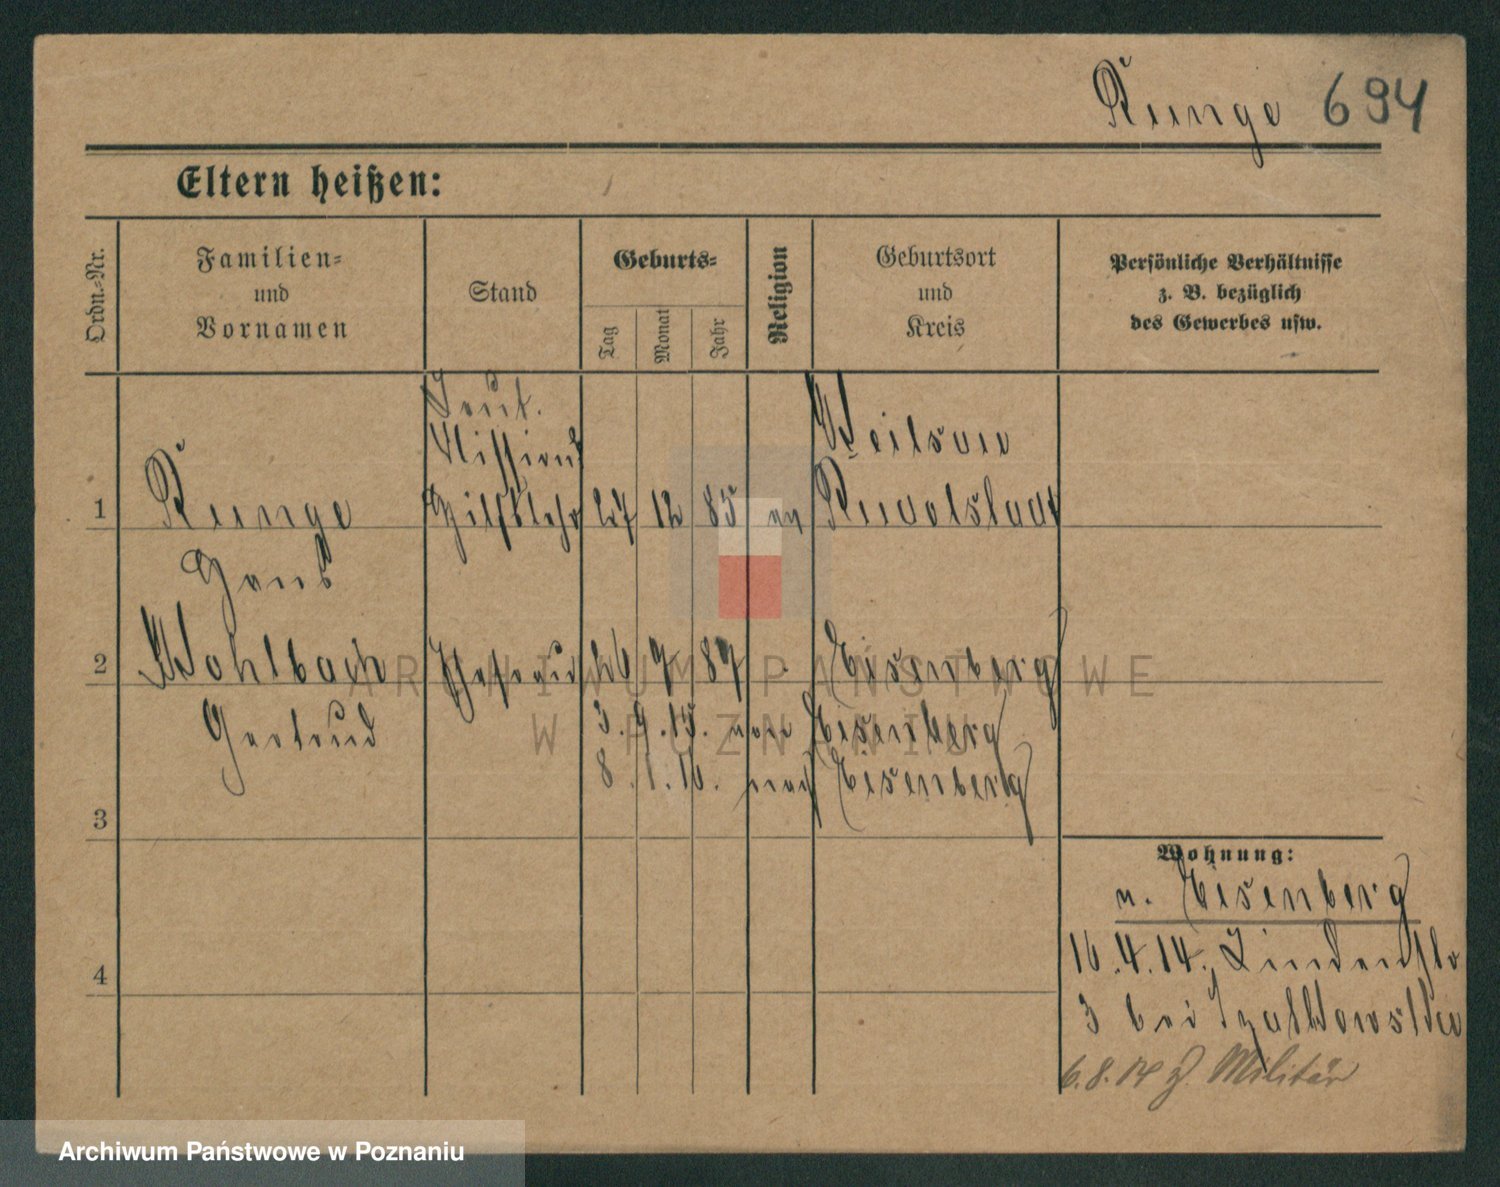 Runge 694
Eltern heißen:
Ordn.-Nr.
Familien-
und
Vornamen
Stand
Geburts-
Tag
Monat
Jahr
Religion
Geburtsort
und
Kreis
Persönliche Verhältnisse
z. B. bezüglich
des Gewerbes usw.
1
Runge
Hans
Hilfslehr
27 12 85 ev
Rudolstadt
2
Wohlbach
Gertrud
Ehefrau
26 7 87
Eisenberg
3. 9. 15. von Eisenberg
8. 1. 16. nach Eisenberg
3
4
Wohnung:
v. Eisenberg
16.4.14. Lindenstr
3 bei
6.8.14 z. Militär
ARCHIWUM PAŃSTWOWE
W POZNANIU
Archiwum Państwowe w Poznaniu